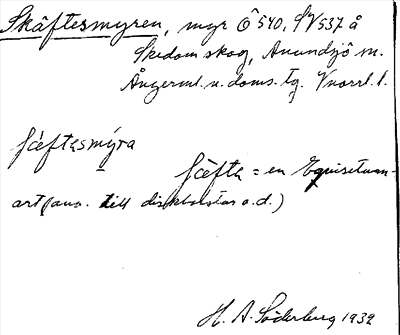 Skäftesmyren, myr Ö 540, SV 537 å
Skedom skog, Anundsjö sn.
Ångerml. n. doms. tg. Vnorrl. l.
ſcèftasmýra
ſcèfta = en Equisetum-
art (anv. till diskborstar o.d.)
H. A. Söderberg 1932